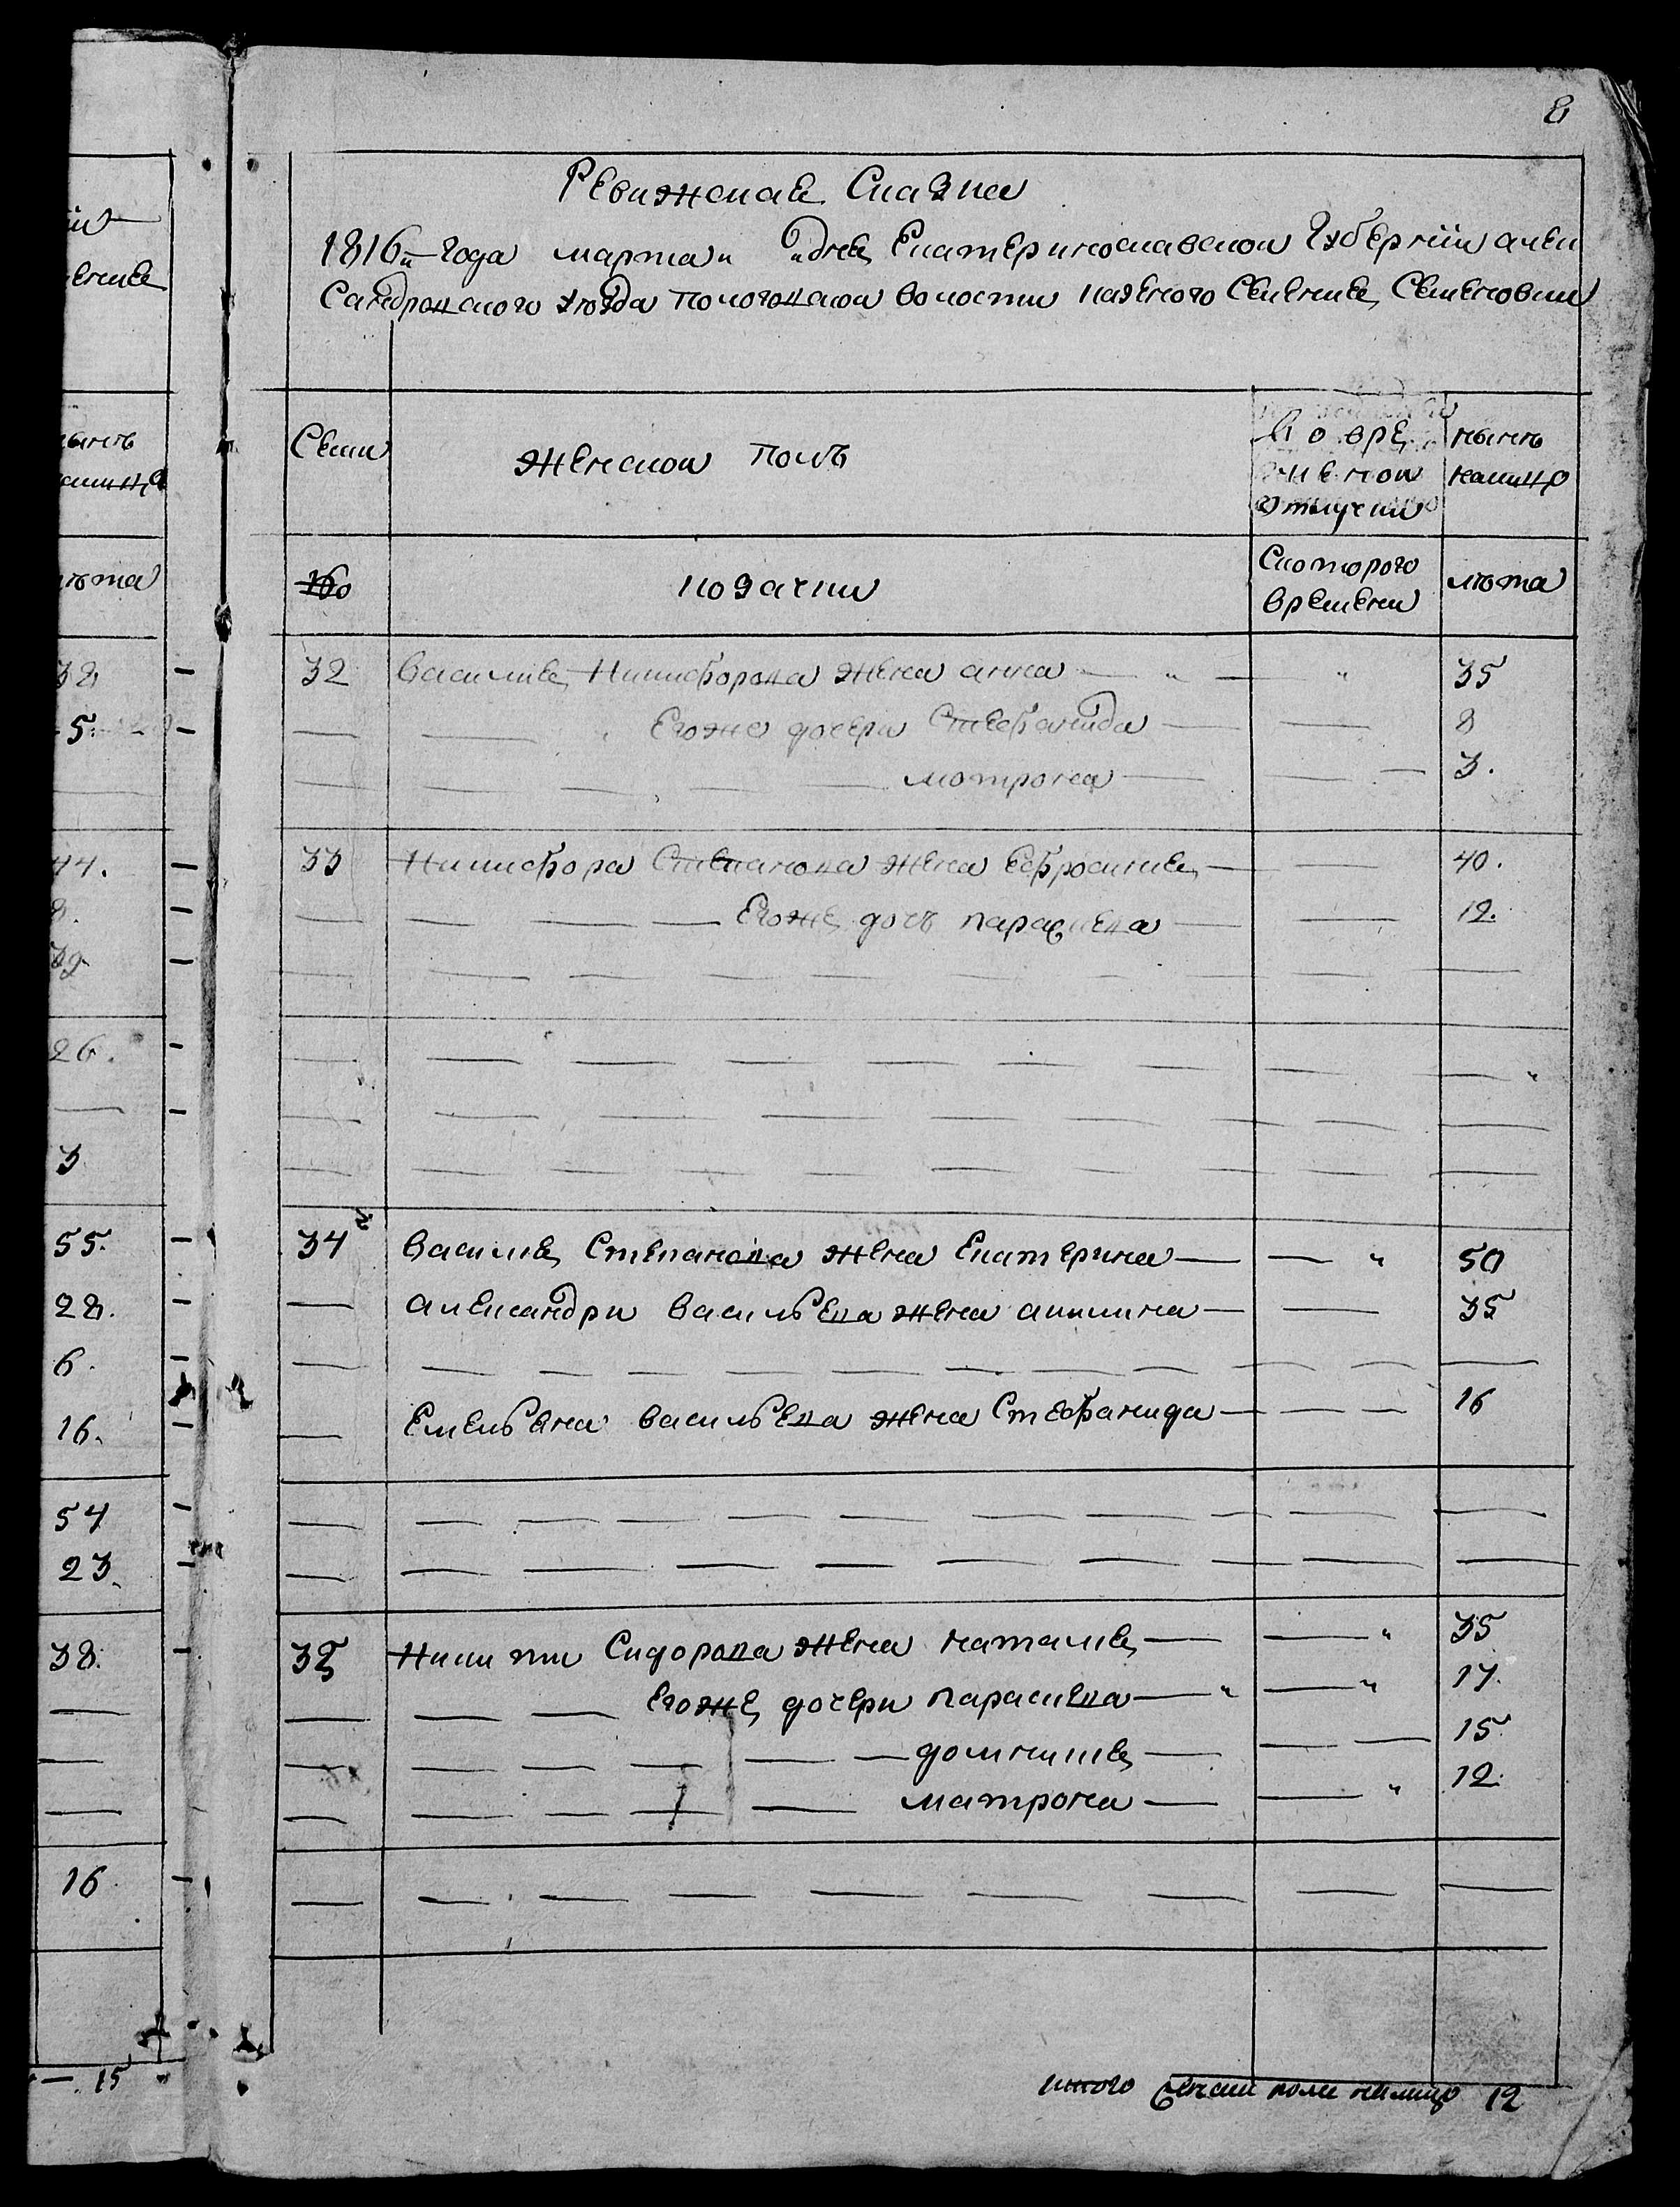 8
Ревижская Сказка
1816го года марта " " дня Екатеринославской Губернии Алек
сандровского уезда Пологовской волости казеного селения Семеновки
Семи
женской пол
во вре
менной
отлучки
ныне
налицо
козачки
С которого
времени
лета
32 Василия Никифорова жена Анна — " — " 35
Егоже дочери Стефанида — — 8
Мотрона — — 3.
33 Никифора Степанова жена Ефросиния — — 40.
Егоже дочь Параскева — — 12.
34 Василия Степанова жена Екатерина — — " 50
Александри Васильева жена Акилина — — 35
Емельяна Васильева жена Стефанида — — — 16
35 Никити Сидорова жена Наталия — — " 35
Егоже дочери Параскева — " — " 17.
Домникия — — — 15
Матрона — — " 12.
итого женска пола налицо 12
ныне
лета
38
5.
44.
8.
39
26.
3
55.
28.
6.
16.
54
23.
38.
16
— 15